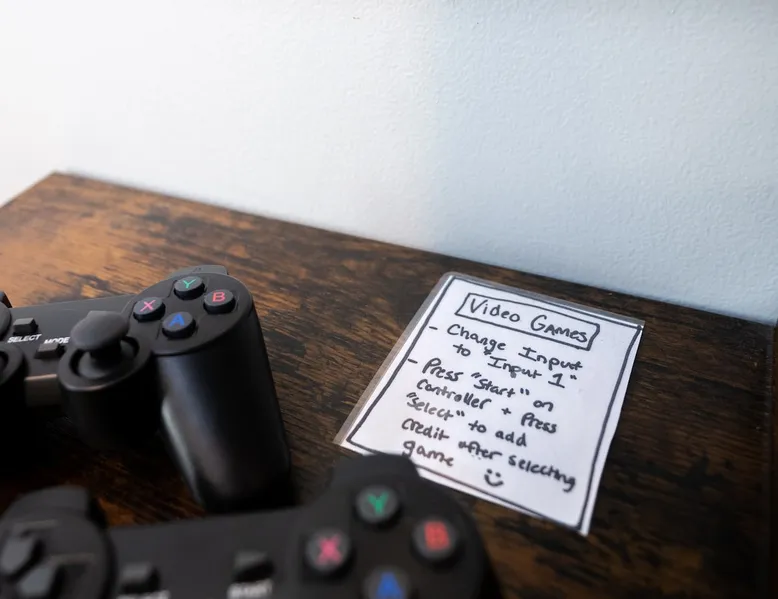 Video Games
- Change Input
to "Input 1"
- Press "Start" on
controller + Press
"Select" to add
credit after selecting
game
SELECT
MODE
Y
X
B
A
Y
X
B
A